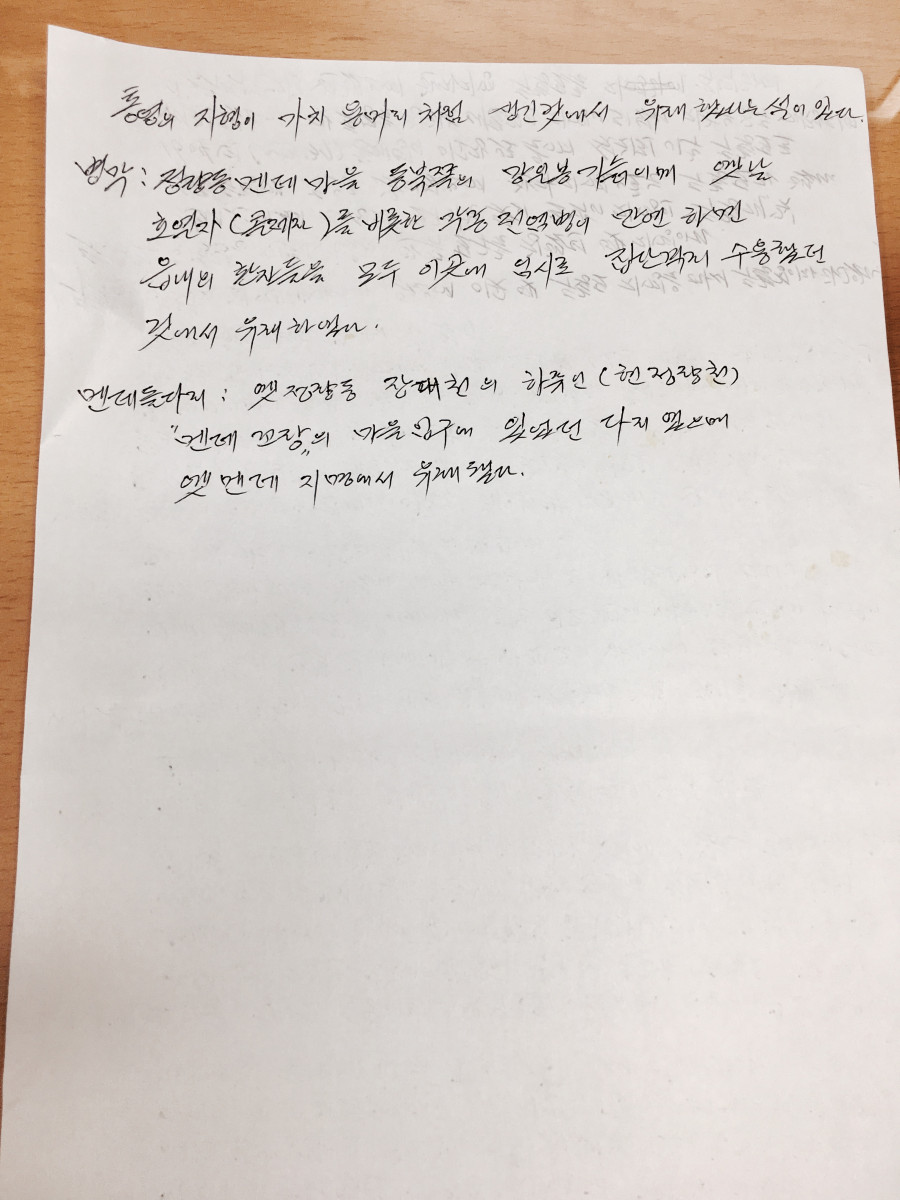 통영의 지형이 가치 등머리 처럼 생긴것에서 유래 했다는 설이 있다.
병막: 정량동 멘데마을 동북쪽의 망일봉 기슭이며 옛날
호열자(콜레라)를 비롯한 각종 전염병이 만연 하면
읍내의 환자들을 모두 이곳에 임시로 집단격리 수용했던
것에서 유래하였다.
멘데돌다리: 옛 정량동 장대천의 하류인(현 정량천)
"멘데 꼬랑"의 마을입구에 있었던 다리 였으며
옛 멘데 지명에서 유래됐다.